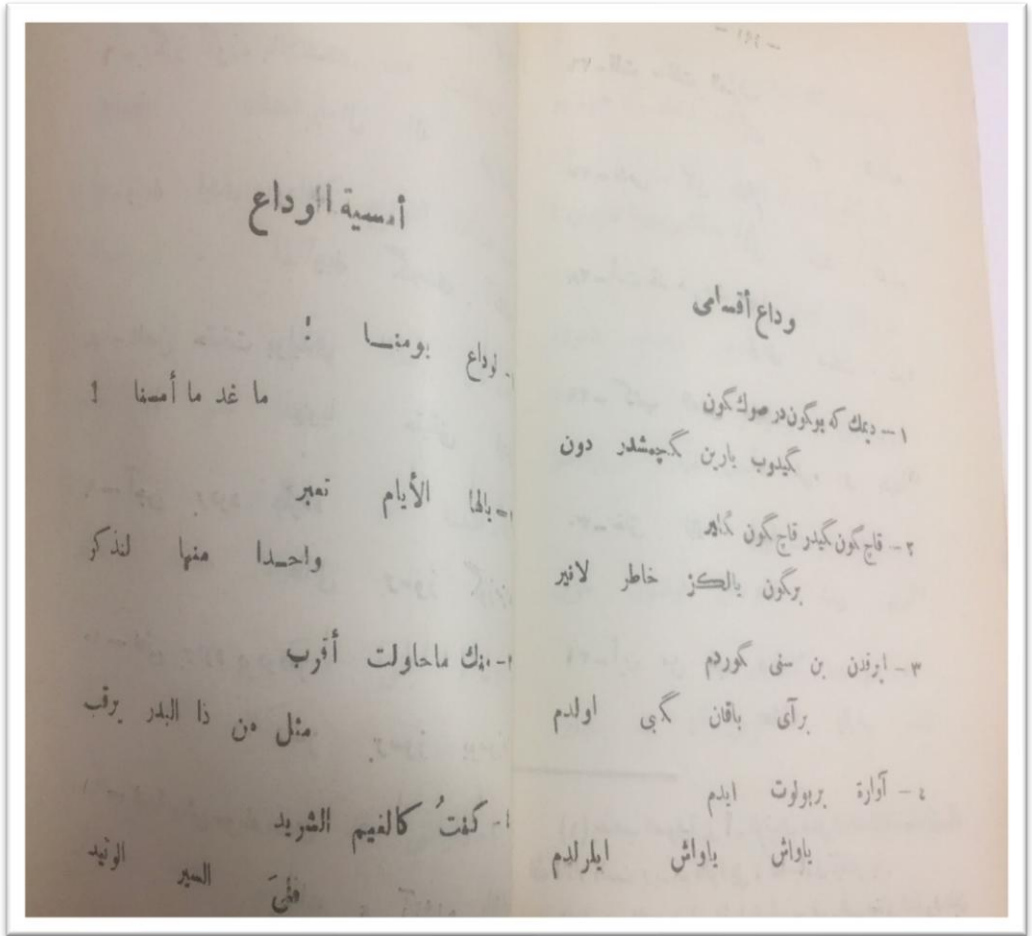 - ١٩١ -
وداع أقسامى
١ - ديمك كه بوگون در صوك گون
گيدوب يارين گچمشدر دون
٢ - قاچ گون گيدر قاچ گون گلير
برگون يالكز خاطر لانير
٣ - ايرقدن بن سنى گوردم
برآى باقان گبى اولدم
٤ - آوارة بربولوت ايدم
ياواش ياواش ايلرلدم
أمسية الوداع
لوداع يومنا !
ما غد ما أمسنا !
يالها الأيام تعبر
واحدا منها لنذكر
منك ماحاولت أقرب
مثل من ذا البدر يرقب
كنتُ كالغيم الشريد
ففىَ السير الوئيد